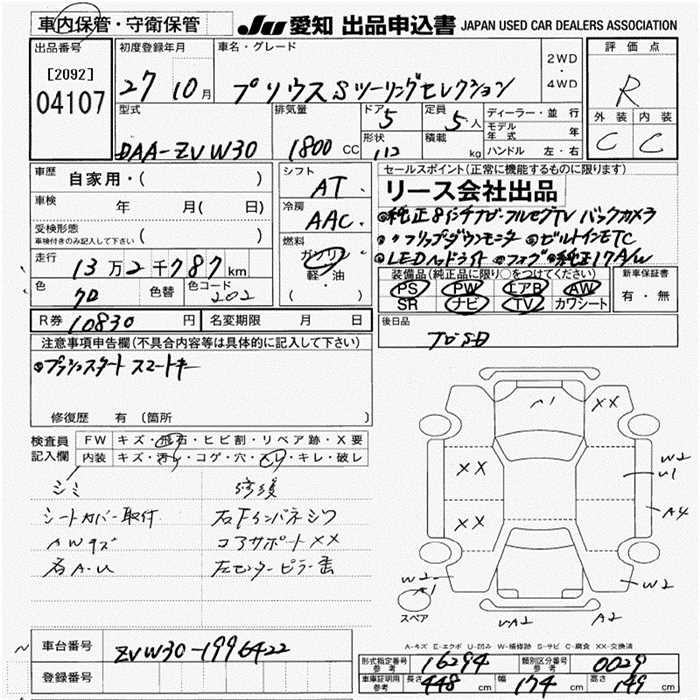 車内保管・守衛保管
JU 愛知 出品申込書 JAPAN USED CAR DEALERS ASSOCIATION
出品番号
[2092]
04107
初度登録年月
27 10月
車名・グレード
プリウス Sツーリングセレクション
2WD
・
4WD
評価点
R
外装 内装
C C
型式
DAA-ZVW30
排気量
1800 CC
ドア
5
形状
定員
5人
積載
kg
ディーラー・並行
モデル年式 年
ハンドル 左・右
車歴
自家用・( )
車検
年 月( 日)
受検形態
車検付きのみ記入して下さい ( )
走行
13万2千787km
色
クロ
色替
色コード
202
シフト
AT
冷房
AAC
燃料
ガソリン
軽・油
セールスポイント(正常に機能するものに限ります)
リース会社出品
●純正8インチナビ・フルセグTV バックカメラ
フリップダウンモニター ●ビルトインETC
●LEDヘッドライト ●フォグ ●純正17A/W
装備品(純正品に限り○をつけてください)
PS PW エアB AW
SR ナビ TV カワシート
新車保証書
有・無
R券 10830円
名変期限 月 日
後日品
注意事項申告欄(不具合内容等は具体的に記入して下さい)
●プッシュスタート スマートキー
修復歴 有(箇所
検査員記入欄
FW キズ・飛石・ヒビ割・リペア跡・X要
内装 キズ・汚れ・コゲ・穴・スレ・キレ・破レ
シミ 修復
シートカバー取付 右Fインパネシワ
AWキズ コアサポートXX
石A-U 左センターピラー歪
A1
XX
XX
XX
W2
U1
A4
W2
A1
W2
A2
スペア
A-キズ E-エクボ U-凹み W-補修跡 S-サビ C-腐食 XX-交換済
車台番号
ZVW30-1996422
登録番号
形式指定番号参考 16294
類別区分番号参考 0029
車庫証明用参考 長さ 448cm 幅 174cm 高さ 149cm